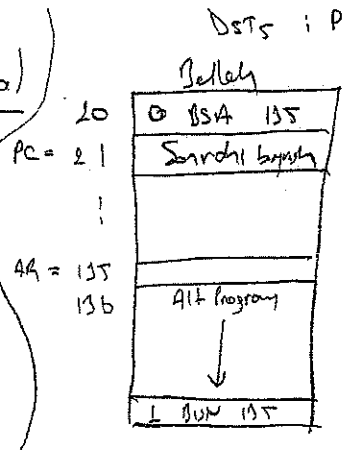 D5T5 : P
Bellek
a)
20 0 BSA 135
PC = 21 Sonraki buyruk
AR = 135
136 Alt Program
1 BUN 135